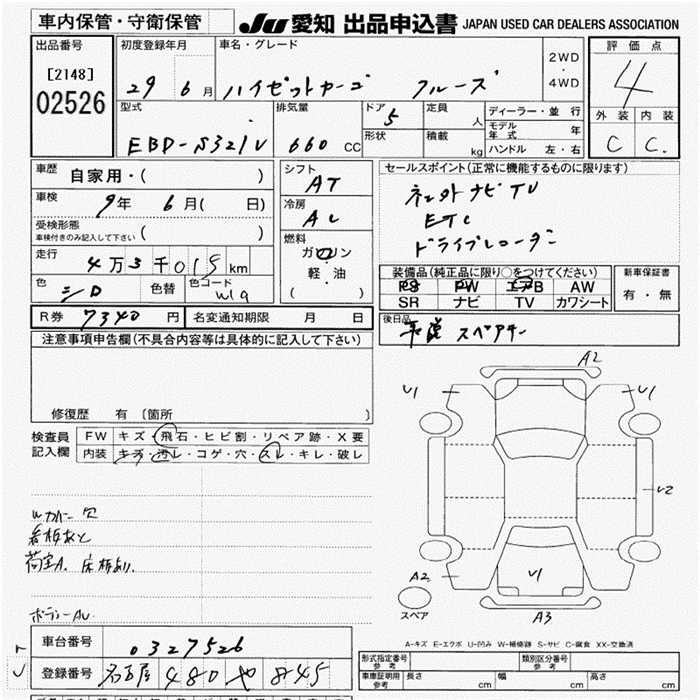 車内保管・守衛保管
JU 愛知 出品申込書 JAPAN USED CAR DEALERS ASSOCIATION
出品番号
[2148]
02526
初度登録年月
29 6 月
車名・グレード
ハイゼットカーゴ クルーズ
2WD
・
4WD
評価点
4
外装 内装
C C.
型式
EBD-S321V
排気量
660 CC
ドア
5
形状
定員
人
積載
kg
ディーラー・並行
モデル年式 年
ハンドル 左・右
車歴 自家用・( )
車検 9年 6月( 日)
受検形態
車検付きのみ記入して下さい ( )
走行 4万3千019km
色 シロ 色替 色コード W19
シフト
AT
冷房
AC
燃料
ガソリン
・
軽・油
( )
セールスポイント(正常に機能するものに限ります)
ネット外ナビTV
ETC
ドライブレコーダー
装備品(純正品に限り○をつけてください)
PS PW エアB AW
SR ナビ TV カワシート
新車保証書
有・無
R券 7340 円 名変通知期限 月 日
後日品
取説 スペアキー
注意事項申告欄(不具合内容等は具体的に記入して下さい)
修復歴 有〔箇所 〕
検査員記入欄
FW キズ・飛石・ヒビ割・リペア跡・X要
内装 キズ・汚レ・コゲ・穴・スレ・キレ・破レ
Wカバー欠
看板あと
荷室A. 床板あり.
ボデーAU
A2
V1
V1
V2
A2
V1
A3
スペア
A-キズ E-エクボ U-凹み W-補修跡 S-サビ C-腐食 XX-交換済
車台番号 0327526
登録番号 名古屋 480 や 8745
形式指定番号
参考
類別区分番号
参考
車庫証明用
参考
長さ cm 幅 cm 高さ cm